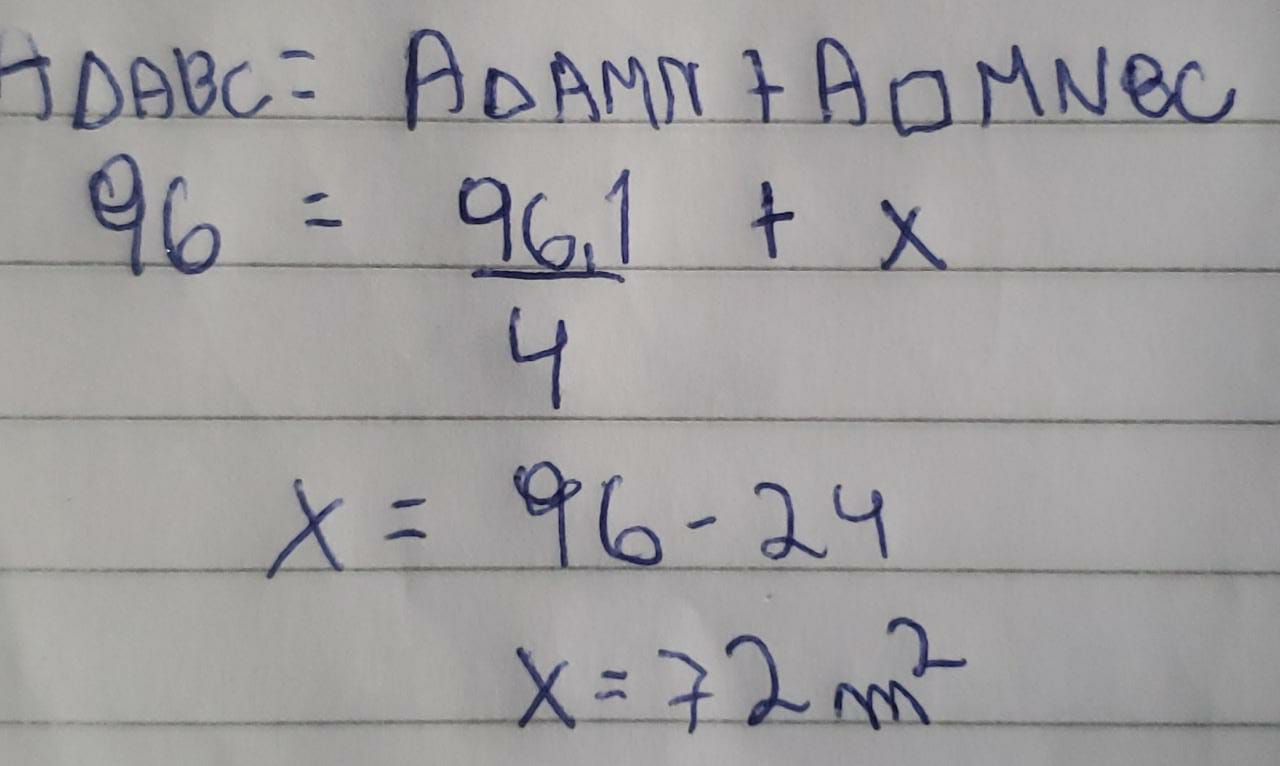 A△ABC = A△AMN + A□MNBC
96 = 96.1 + x
4
x = 96 - 24
x = 72 m²